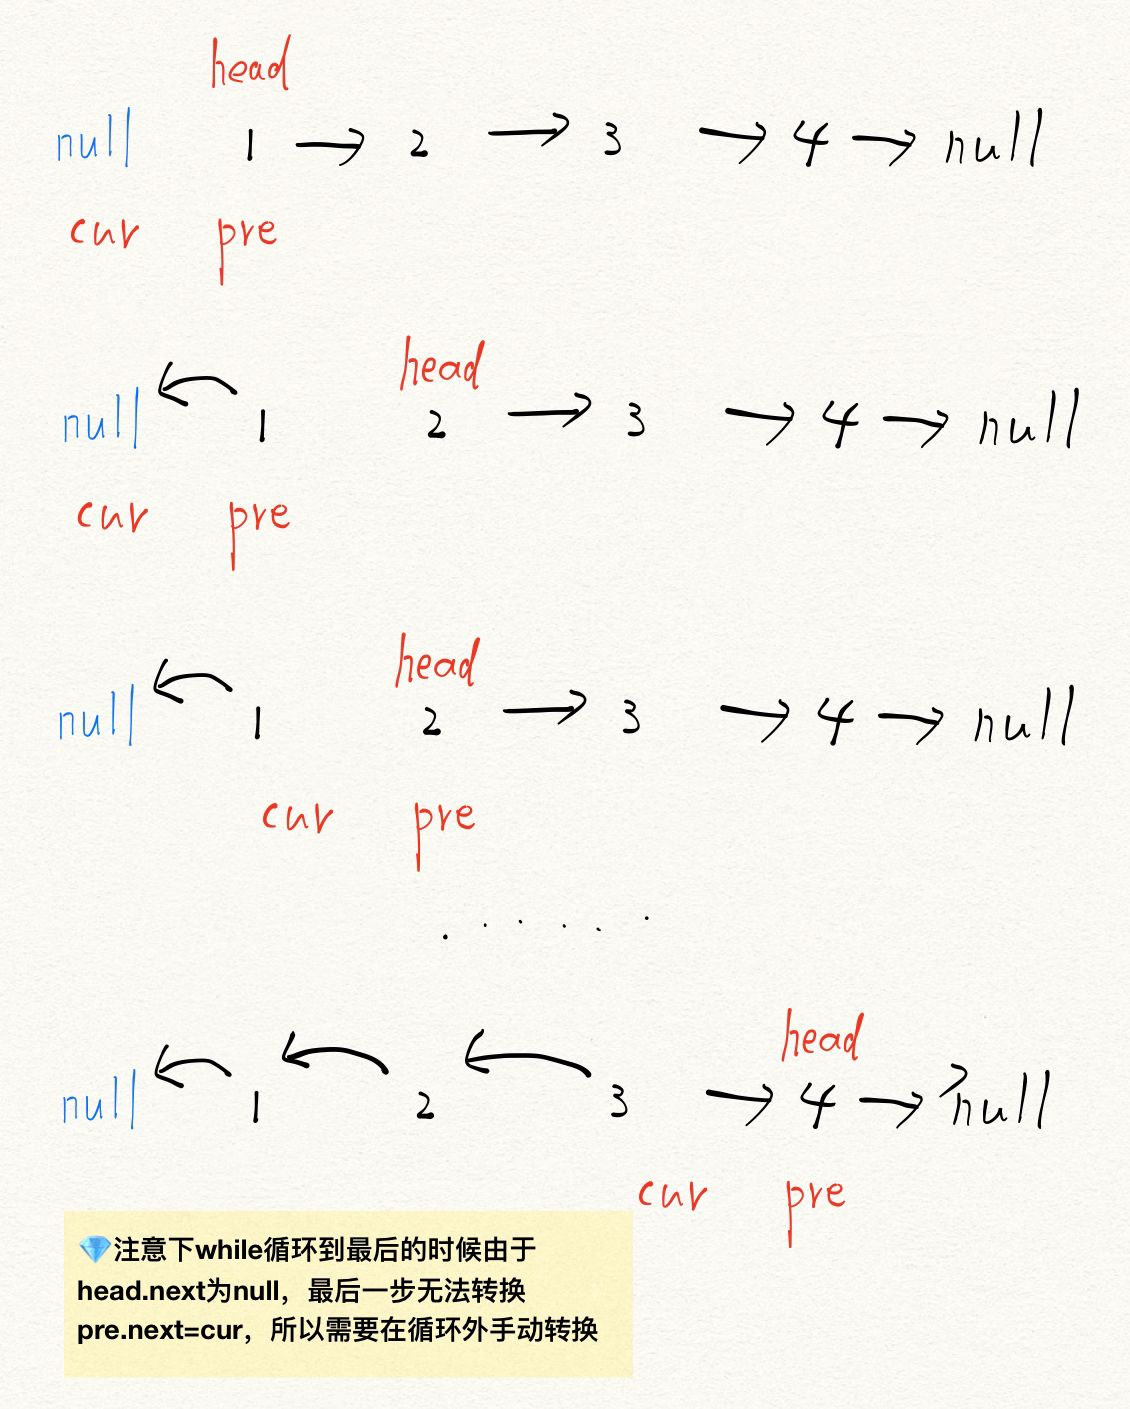 head
null 1 → 2 → 3 → 4 → null
cur pre
head
null ← 1 2 → 3 → 4 → null
cur pre
head
null ← 1 2 → 3 → 4 → null
cur pre
......
head
null ← 1 ← 2 ← 3 → 4 → null
cur pre
💎注意下while循环到最后的时候由于
head.next为null，最后一步无法转换
pre.next=cur，所以需要在循环外手动转换